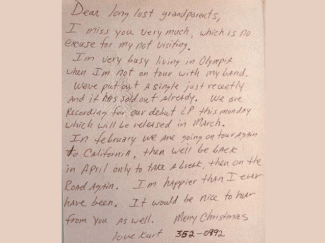 Dear long lost grandparents,
I miss you very much, which is no
excuse for my not visiting.
I'm very busy living in Olympia
when I'm not on tour with my band.
We've put out a single just recently
and it has sold out already. We are
Recording for our debut LP this monday
which will be released in March.
In february we are going on tour again
to California, then well be back
in April only to take a break, then on the
Road again. I'm happier than I ever
have been. It would be nice to hear
from you as well. Merry Christmas
love Kurt 352-0992